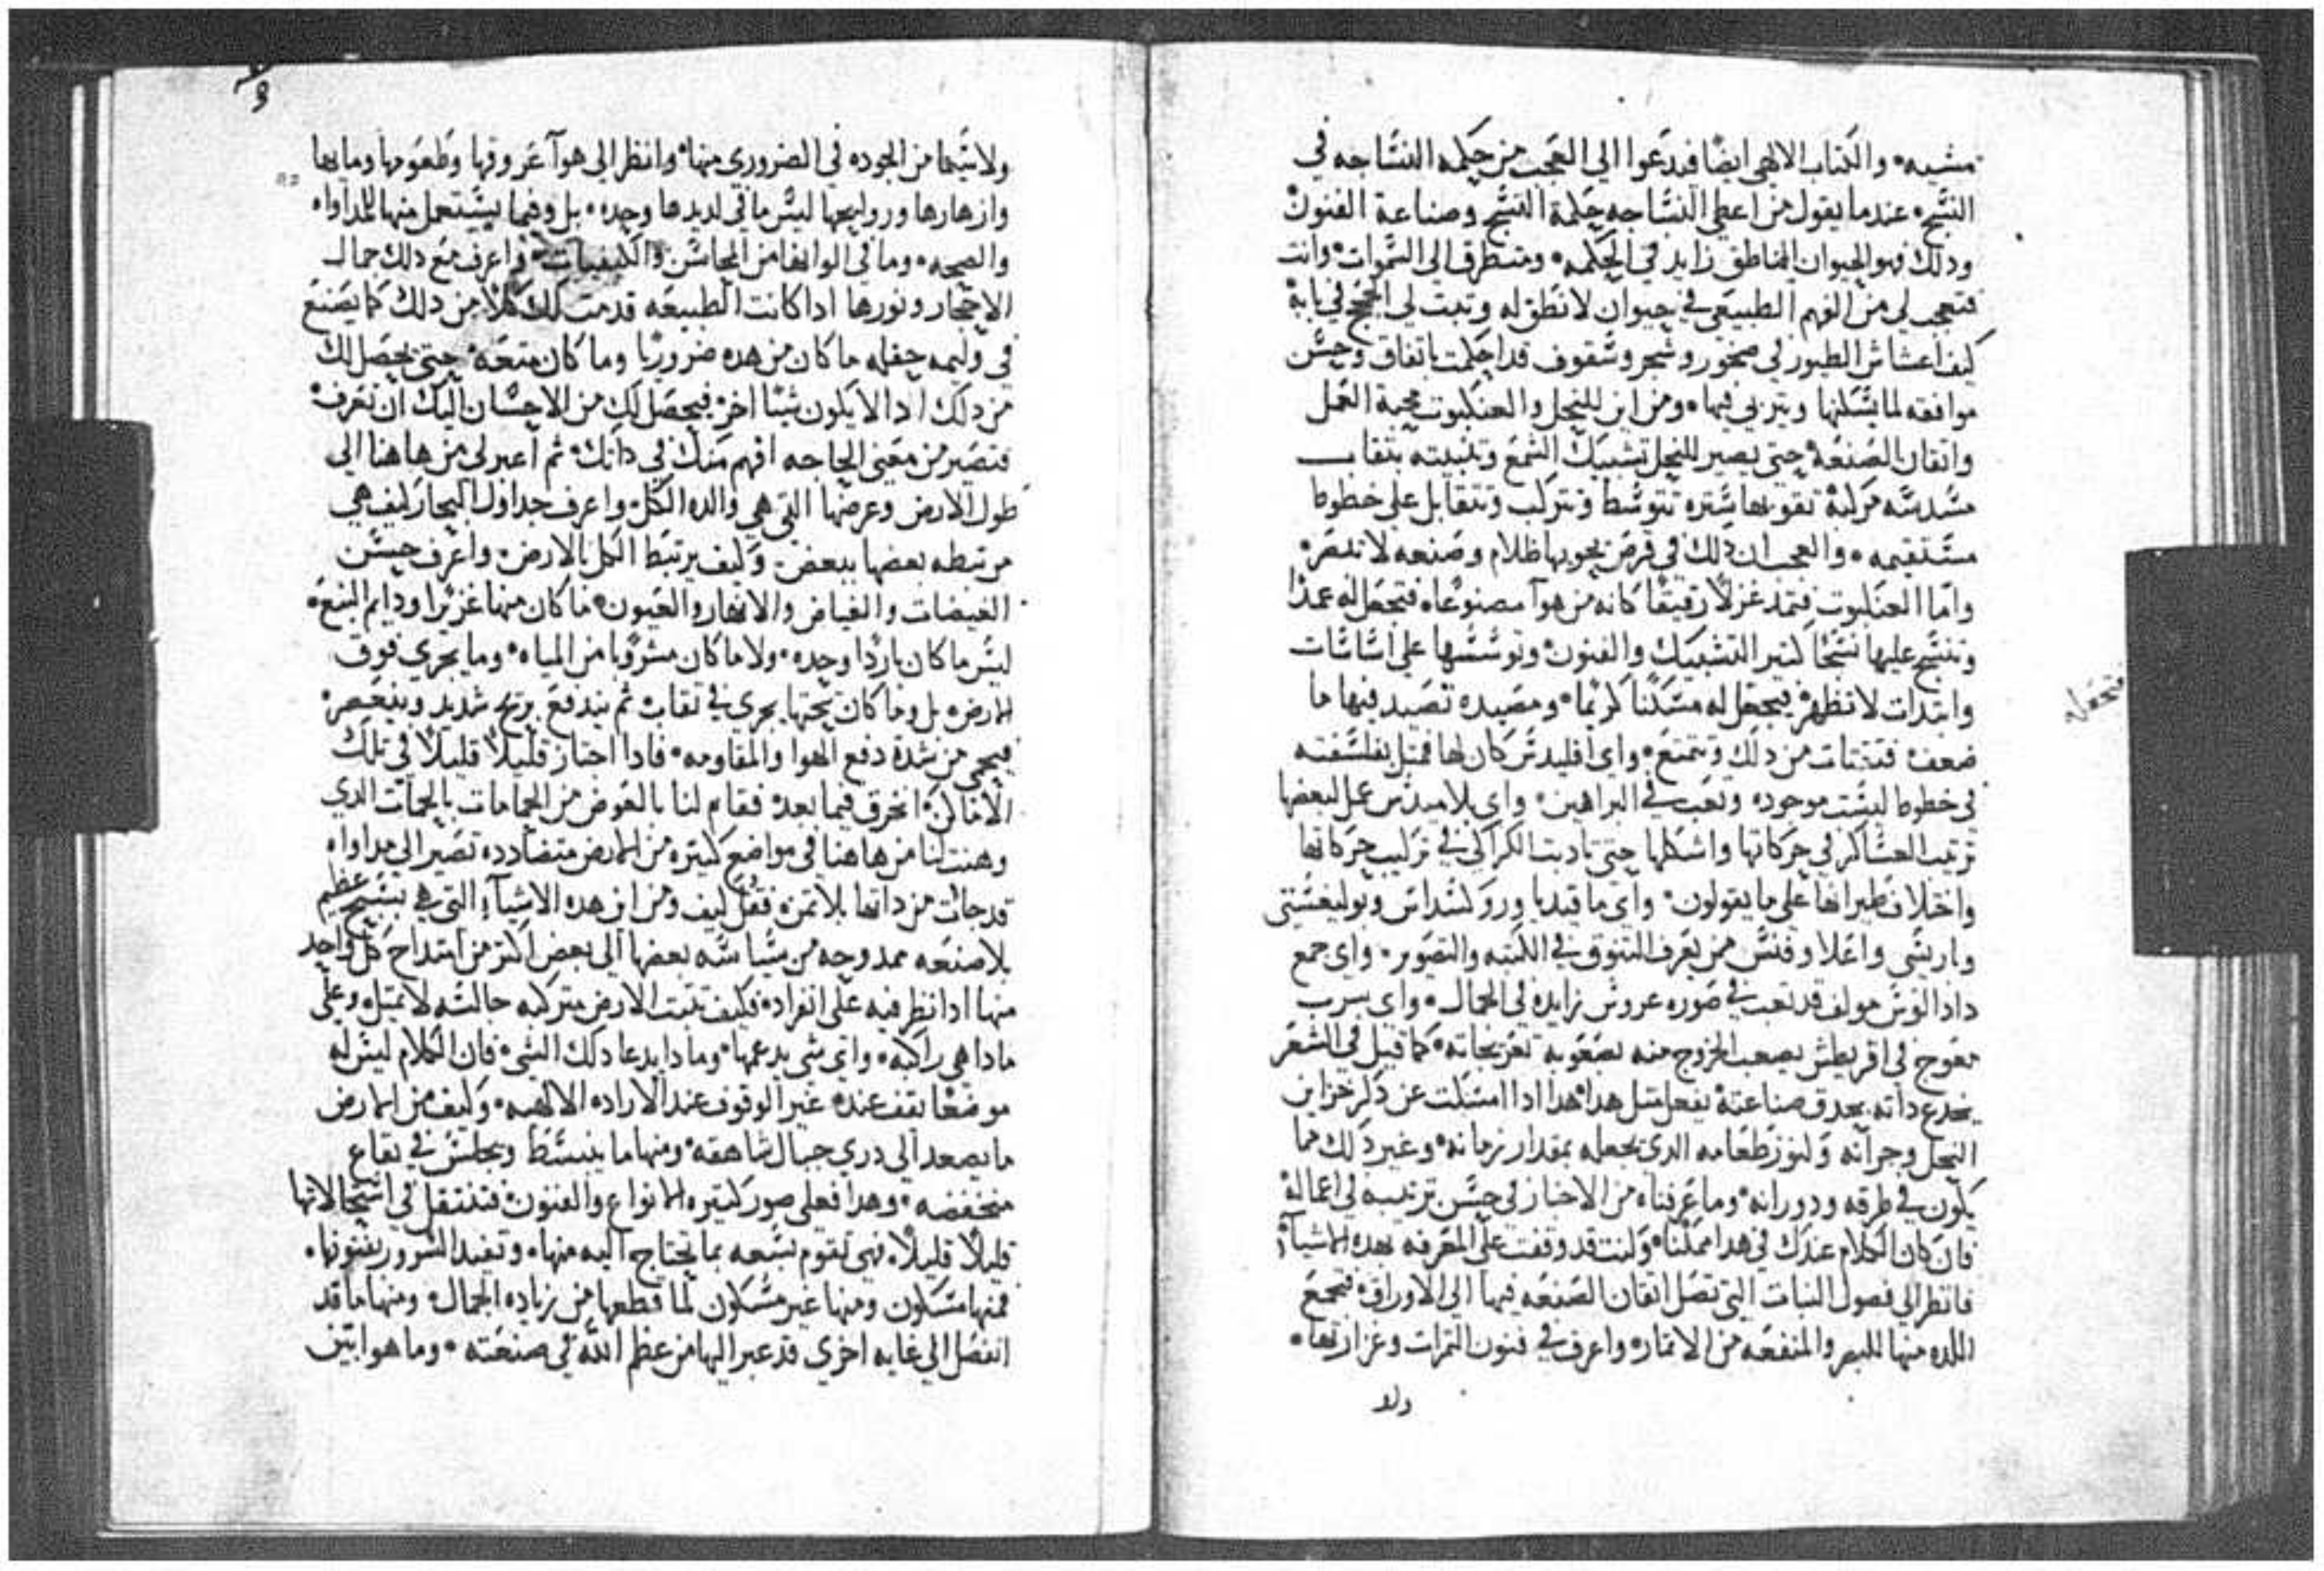 مشيه٠ والكتاب الالهي ايضًا فيدعوا الي العجب من حكمه النساجه في
النسج٠ عندما يقول من اعطي النساجه حكمة النسج وصناعة الفنون٠
ودلك فهو الحيوان الناطق زايد في الحكمه٠ ومتطرق الي السموات٠ وانت
فتعجب لي من الفهم الطبيعي في حيوان لا نطق له وتبت لي الحجج في بابه
كيف اعشاش الطيور في صخور وشجر وسقوف قد احكمت باتفاق وحسن
موافقه لما يسكنها ويتربي فيها٠ ومن اين للنحل والعنكبوت محبة العمل
واتقان الصنعة٠ حتي يصير للنحل تشبيك الشمع وتتبيته بنقاب
مسدسه مركبة تقويها ستره تتوسط وتتركب وتتقابل علي خطوط
مستقيمه٠ والعجب ان دلك في قرص يحويها ظلام وصنعه لا تبصر٠
واما العنكبوت فتمد غزلًا رقيقًا كانه من هوآ مصنوعًا٠ فتجعل له عمدًا
وتنسج عليها نسجًا كتير التشبيك والفنون٠ وتوسسها علي اساسات
وابتدات لا تظهر٠ فيجعل له مسكنًا كريمًا٠ ومصيده تصيد فيها ما
ضعف٠ فتقتات من دلك وتتمتع٠ واي اقليدس كان لها فمتل بفلسفته
في خطوط ليست موجوده وتعب في البراهين٠ واي بلاميدس عمل لبعضها
ترتيب العساكر في حركاتها واشكلها حتي تادبت الكراكي في تركيب حركاتها
واختلاف طيرانها علي ما يقولون٠ واي ما فيديا وروكسداس وبوليغنتي
واريسي واغلاوفنس ممن يعرف التنوق في الكتبه والتصوير٠ واي جمع
دادالوس مولف قد تعب في صوره عروس زايده في الجمال٠ واي سرب
معوج في اقريطش يصعب الخروج منه بصعوبة تعريجاته٠ كما قيل في الشعر
يخدع داته بحدق صناعتة بفعل متل هدا٠ هدا ادا امسكت عن دكر خزاين
النحل وجرانه وكنوز طعامه الدي يجعله بمقدار زمانه٠ وغير دلك مما
يكون في طرقه ودورانه٠ وما عرفناه من الاخبار في حسن ترتيبه في اعماله٠
فان كان الكلام عندك في هدا ممكنًا٠ وكنت قد وقفت علي المعرفه بهده الاشيآ٠
فانظر الي فصول النبات التي تصل اتقان الصنعه فيها الي الاوراق٠ فتجمع
اللده منها للبصر والمنفعه من الاتمار٠ واعرف في فنون التمرات وغزارتها٠
ولا
فتجعل له
ولا سيما من الجوده في الضروري منها٠ وانظر الي هوآ عروقها وطعومها ومايها
وازهارها وروايحها ليس ما في لديدها وحده٠ بل وفيما يستعمل منها للمداواه
والصحه٠ وما في الوانها من المحاسن والكيفيات٠ واعرف مع دلك جمال
الاحجار ونورها ادا كانت الطبيعه قدمت لك كلًا من دلك كما يصنع
في وليمه حفله ما كان من هده ضروريًا وما كان متعه٠ حتي يحصل لك
من دلك ادا لا يكون شيًا اخر٠ فيحصل لك من الاحسان اليك ان تعرف٠
فتصير من معني الحاجه افهم منك في داتك٠ ثم اعبر لي من هاهنا الي
طول الارض وعرضها التي هي والده الكل٠ واعرف جداول البحار كيف هي
مرتبطه بعضها ببعض٠ وكيف يرتبط الكل بالارض٠ واعرف حسن
الغيضات والغياض والانهار والعيون٠ ما كان منها غزيرًا ودايم النبع٠
ليس ما كان باردًا وحده٠ ولا ما كان مشروبًا من المياه٠ وما يجري فوق
الارض٠ بل وما كان تحتها يجري في نقاب٠ ثم يندفع بريح شديد وينعصر٠
فيحمي من شدة دفع الهوا والمقاومه٠ فادا اجتاز قليلًا قليلًا في تلك
الاماكن٠ انخرق فيما بعد٠ فقام لنا بالعوض من الحمامات بالحمات الدي
وهنت لنا من هاهنا في مواضع كتيره من الارض متضادده تصير الي مداواه
قد جات من داتها بلا تمن٠ فقل كيف ومن اين هده الاشيآء التي هي بنسج عظيم
بلا صنعه ممدوحه من سياسه بعضها الي بعض اكتر من امتداح كل واحد
منها ادا نظر فيه علي انفراد٠ فكيف تتبت الارض متركبه جالسه لا تمتل٠ وعلي
مادا هي راكبه٠ واي شي يدعمها٠ ومادا يدعا دلك الشي٠ فان الكلام ليس له
موضعًا يقف عنده غير الوقوف عند الاراده الالهيه٠ وكيف من الارض
ما يصعد الي دري جبال شاهقه٠ ومنها ما ينبسط ويجلس في بقاع
منخفضه٠ وهدا فعلي صور كتيره الانواع والفنون٠ فتنتقل في استحالاتها
قليلًا قليلًا٠ فهي تقوم بسعه بما يحتاج اليه منها٠ وتفيد السرور بفنونها٠
فمنها مسكون ومنها غير مسكون لما قطعها من زياده الجمال٠ ومنها ما قد
انفصل الي غايه اخري قد عبر اليها من عظم الله في صنعته٠ وما هو ابين